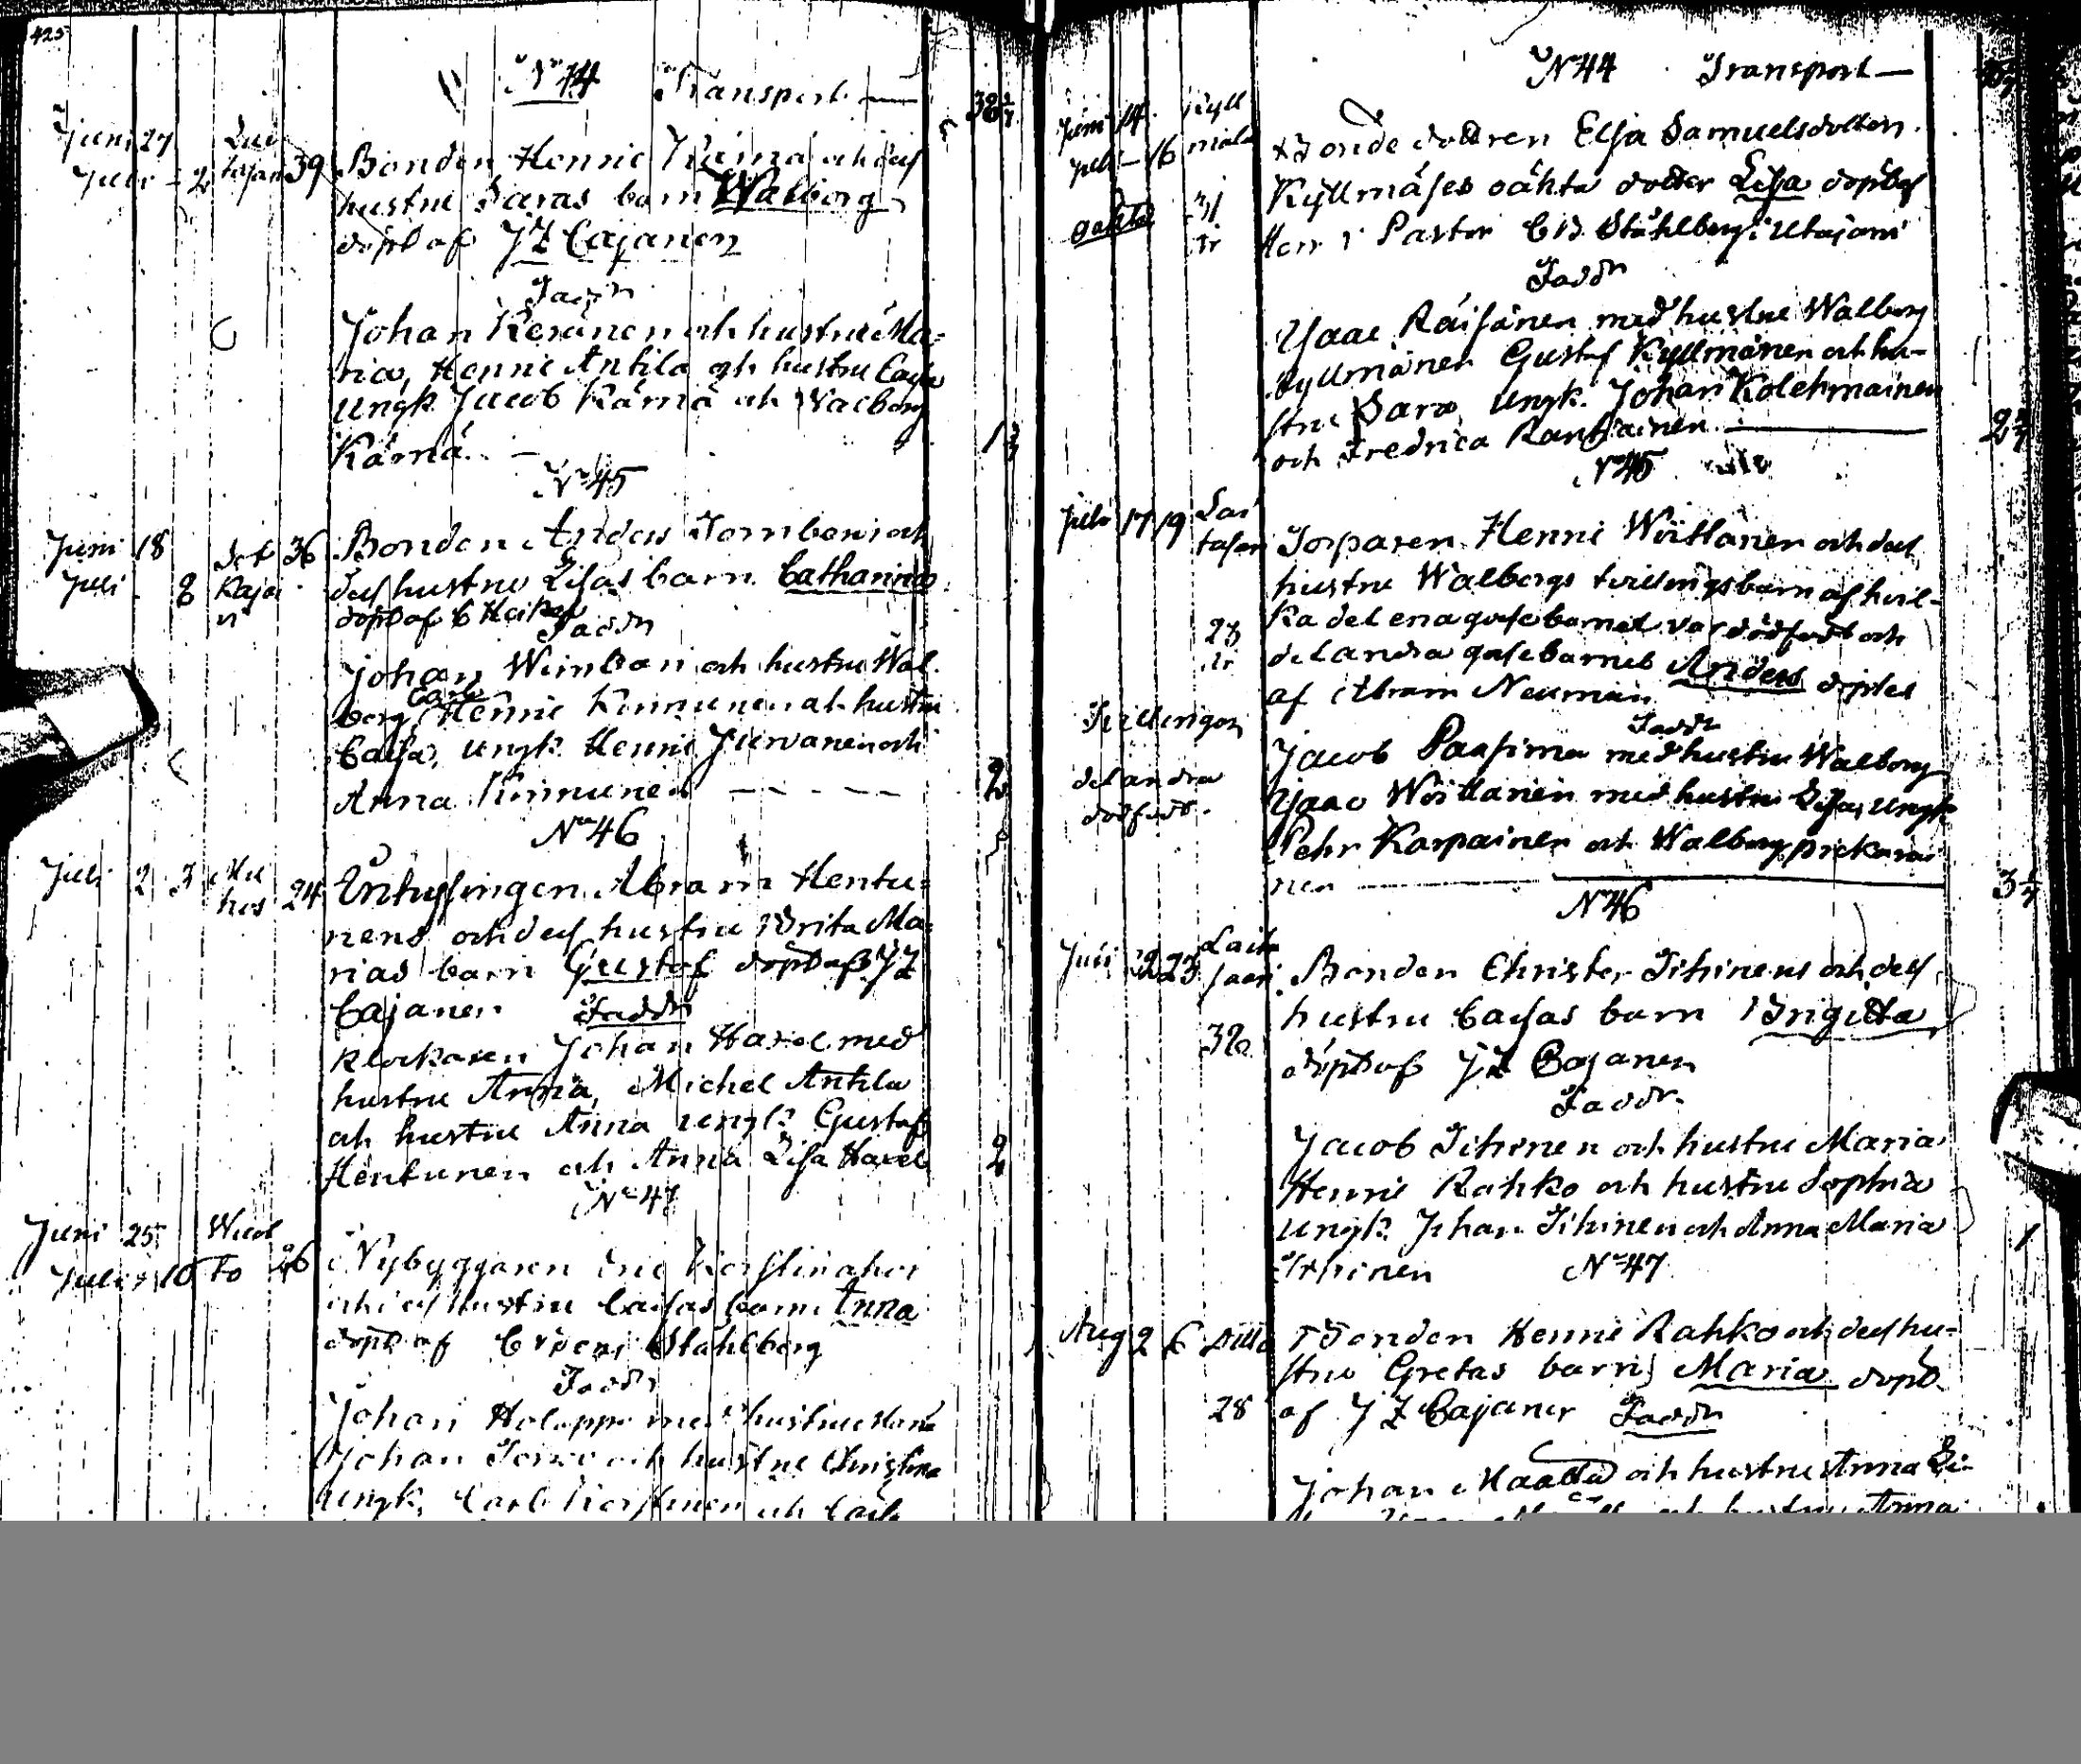 425
No 44 Transport —
38 2/7
Juni 27
Juli - 2
39 Bonden Henric Kärnä och dess
hustru Saras barn Walborg
döpt af J Z Cajanen
Faddr
Johan Keränen och hustru Ma-
ria, Henric Antila och hustru Caisa
Ungk. Jacob Kärnä och Walborg
Kärnä. —
No 45
Juni 18
Juli 8
36 Bonden Anders Tornberg och
dess hustru Lisas barn Catharina
döpt af C Heikel
Faddr
Johan Wimbari och hustru Wal-
borg, Henric Kinnunen och hustru
Caisa, Ungk. Henric Juvanen och
Anna Kinnunen — — — — —
2
No 46
Juli 2 3 Mu
hos 24
Inhysingen Abram Hentu-
nens och dess hustru Brita Ma-
rias barn Gustaf döpt af J Z
Cajanen Faddr
Klockaren Johan Haxel med
hustru Anna, Michel Antila
och hustru Anna ungk. Gustaf
Hentunen och Anna Lisa Haxel
2
No 47
Juni 25
Juli 10
Nybyggaren Eric
och dess hustru Caisas barn Anna
döpt af Stahlberg
Faddr
Johan Holappa med hustru
Johan och hustru Christina
Ungk. Carl och
No 44 Transport —
Juni 14 Kyll
Juli - 16 mäla
oäkta
31
år
Bonde dottren Elsa Samuelsdotter
Kyllmäses oäkta dotter Lisa döpt af
Herr Pastor C B Ståhlberg i Utajärvi
Faddr
Isaac Räisänen med hustru Walborg
Kyllmänen Gustaf Kyllmänen och hu-
stru Sara, Ungk. Johan Kolehmainen
och Fredrica Rantainen
2 2/7
No 45
Juli 17 19
28
år
Torparen Henric Wöittänen och dess
hustru Walborgs tvillingsbarn af hvil-
ka det ena gossebarnet var dödfödt och
det andra gossebarnet Anders döptes
af Abram Neuman
Faddr
Tvillingar
det andra
dödfödt.
Jacob Paasima med hustru Walborg
Isaac Wöittänen med hustru Lisa, Ungk
Pehr Karpainen och Walborg Pickarai-
nen
3 1/7
No 46
Juli 22 23 Laita
saari
32
Bonden Christer Tihinens och dess
hustru Caisas barn Brigitta
döpt af J Z Cajanen
Faddr.
Jacob Tihinen och hustru Maria
Henric Rahko och hustru Sophia
Ungk. Johan Tihinen och Anna Maria
Tihinen
1
No 47
Aug 2 6 Ditto
28
Bonden Henric Rahko och dess hu-
stru Gretas barn Maria döpt
af J Z Cajaner Faddr
Johan Maatta och hustru Anna Li-
och hustru Anna